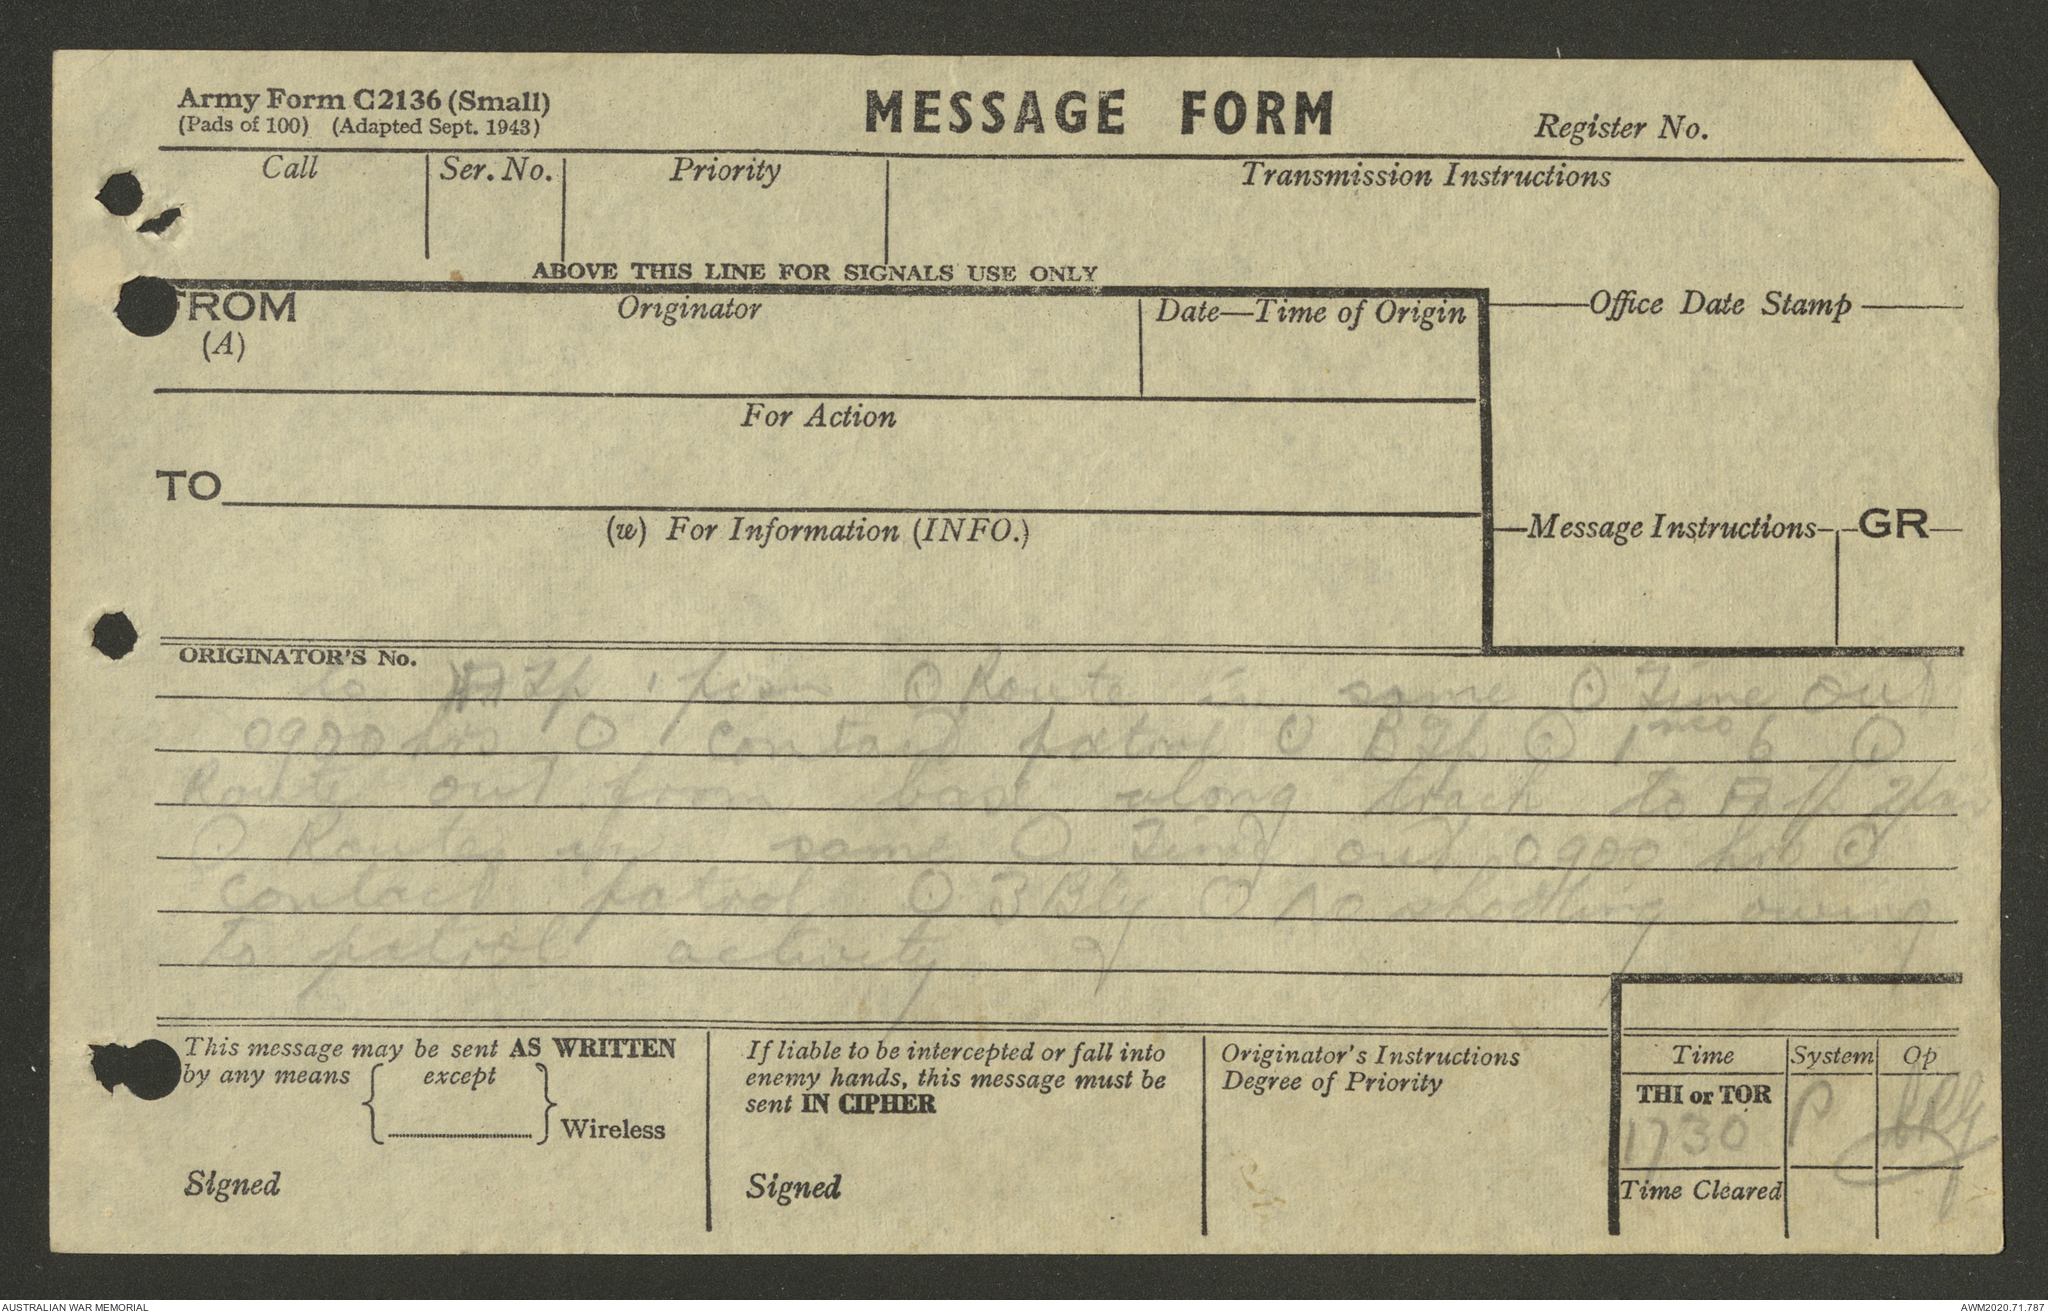 Army Form C2136 (Small)
(Pads of 100) (Adapted Sept. 1943)
MESSAGE FORM
Register No.
Call
Ser. No.
Priority
Transmission Instructions
ABOVE THIS LINE FOR SIGNALS USE ONLY
FROM
(A)
Originator
Date—Time of Origin
Office Date Stamp
For Action
TO
(w) For Information (INFO.)
Message Instructions
GR
ORIGINATOR'S No.
to Tp posn ⊙ Route in same ⊙ Time out
0900 hrs ⊙ contact patrol ⊙ B Tp ⊙ 1 nco 6 ⊙
Route out from base along track to
⊙ Route in same ⊙ Time out 0900 hrs ⊙
contact patrol ⊙ 3 Bty ⊙ no shooting owing
to patrol activity
This message may be sent AS WRITTEN
by any means { except } Wireless
Signed
If liable to be intercepted or fall into
enemy hands, this message must be
sent IN CIPHER
Signed
Originator's Instructions
Degree of Priority
Time
System
Op
THI or TOR
1730
P
Time Cleared
AUSTRALIAN WAR MEMORIAL
AWM2020.71.787